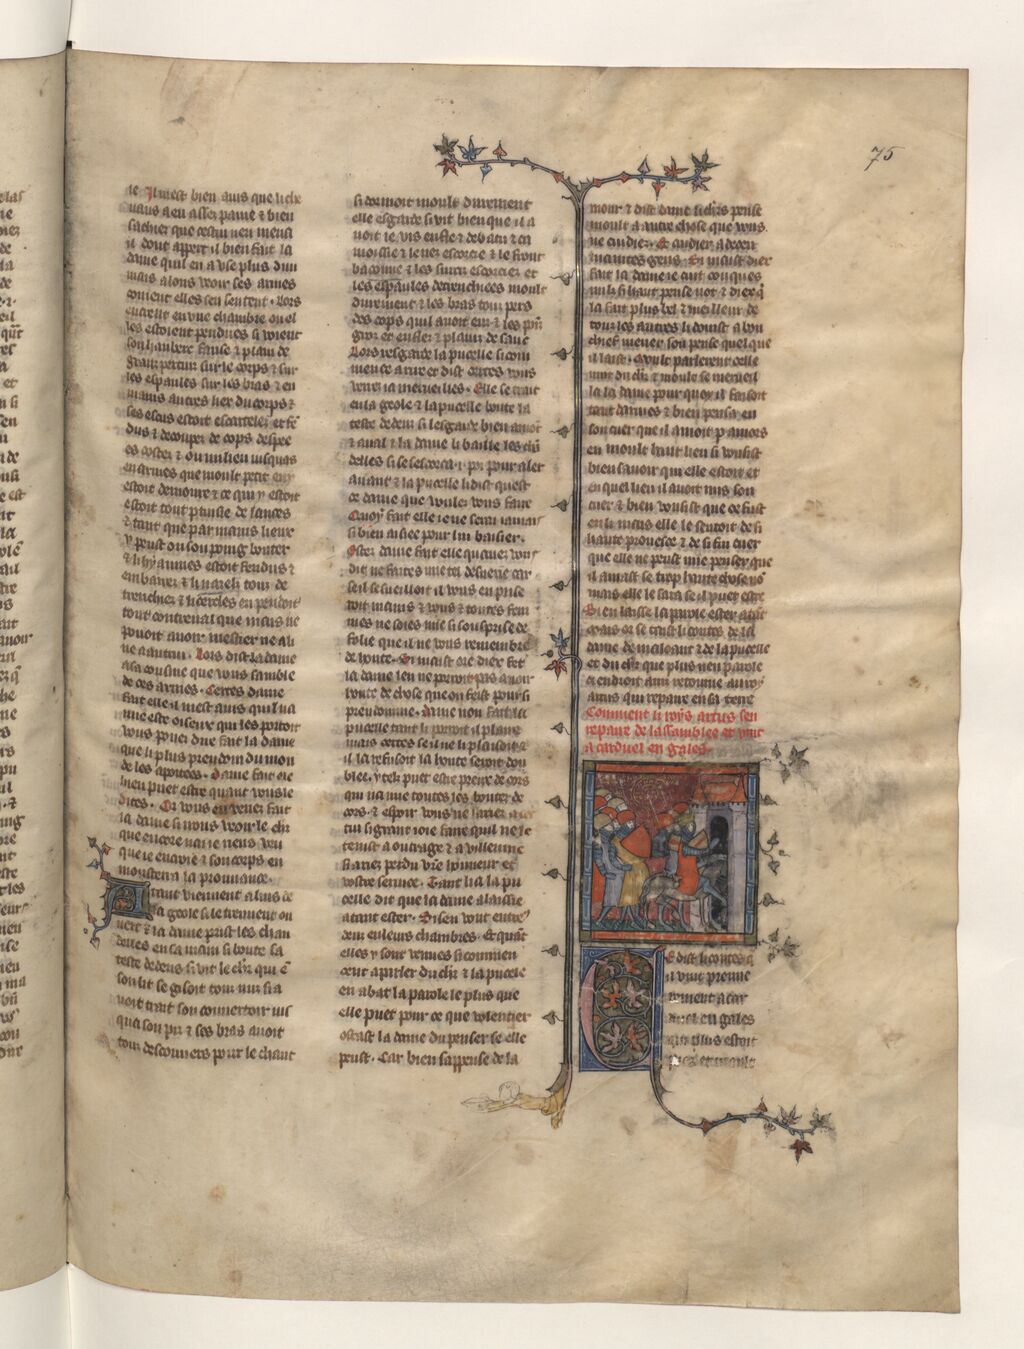 75
ie Il mest bien auis que li ch'rs
uaus a eu asses paine ⁊ bien
sachiez que cestui nen menti
il dont appert il bien fait la
dame quil en a use plus dun
mais alons veoir ses armes
conment elles sen sentent. Lors
entrent en une chambre ou el
les estoient pendues si voient
son haubert fause ⁊ plain de
granz pertuis sur le corps ⁊ sur
les espaules sur les bras ⁊ en
mains autres liex du corps ⁊
ses escus estoit escartelez et fen
dus ⁊ decoupez de cops despee
es costez ⁊ ou milieu iusquas
enarmes que moult petit en
estoit demoure ⁊ ce qui y estoit
estoit tout pertuisie de lances
⁊ tant que par mains lieux
y peust on son poing bouter
⁊ li hyaumes estoit fendus ⁊
embarrez ⁊ li nasels touz de
trenchiez ⁊ li cercles en pendoit
tout contreual que mais ne
pouoit auoir mestier ne a li
ne a autrui. Lors dist la dame
a sa cousine que vous samble
de ces armes. Certes dame
fait elle il mest auis quil na
mie este oiseux qui les portoit
vous pouez dire fait la dame
que li plus preudom du mon
de les a portees. Dame fait ele
bien puet estre quant vous le
dites. Or vous en venez fait
la dame si irons veoir le ch'r
que encore nai ie riens veu
que ie en croie ⁊ son corps en
moustera la prouuance.
Atant viennent a luis de
la geole si le treuuent ou
uert ⁊ la dame prist les chan
deles en sa main si bouta sa
teste dedens si vit le ch'r qui en
son lit se gisoit touz nuz si a
uoit trait son couuertoir ius
qua son piz ⁊ ses bras auoit
touz descouuers pour le chaut
si dormoit moult durement
elle esgarde si vit bien que il a
uoit le vis enfle ⁊ debatu ⁊ ca
moissie ⁊ le nez escorcie ⁊ le front
bacinne ⁊ les surcis escorciez et
les espaules detrenchiees moult
durement ⁊ les bras touz pers
des cops quil auoit euz ⁊ les poins
gros et enflez ⁊ plains de sanc
Lors resgarde la pucelle si com
mence a rire et dist certes vous
verrez ia merueilles. Elle se trait
en la geole ⁊ la pucelle bouta la
teste dedenz si lesgarde bien amot
⁊ aual ⁊ la dame li baille les chan
delles si se sescorca .i. poi pour aler
auant ⁊ la pucelle li dist quest
ce dame que voulez vous faire
Quoy fait elle ie ne serai iamais
si bien aisiee pour lui baisier.
Ostez dame fait elle quauez vous
dit ne faites une tel desuerie car
seil sesueilloit il vous en prise
roit mains ⁊ vous ⁊ toutes fem
mes ne soies mie si souprise de
folie que il ne vous remembre
de honte. Si maist dex dist fet
la dame len ne porroit pas auoir
honte de chose que on feist pour si
preudomme. Dame non fait la
pucelle tant li porroit il plaire
mais certes seil ne li plaisoit ⁊
il la refusoit la honte seroit dou
blee. ⁊ tex puet estre preux de cors
qui na mie toutes les bontez de
cors. ⁊ espoir vous ne sariez a ce
tui si grant ioie faire quil ne le
tenist a outrage ⁊ a villennie
si ariez perdu vre honneur et
vostre seruice. Tant li a la pu
celle dit que la dame a laissie
atant ester. Si sen vont entre
deux en leurs chambres. Et quant
elles y sont venues si conmen
cent a parler du ch'r ⁊ la pucele
en abat la parole le plus que
elle puet pour ce que volentier
ostast la dame du penser se elle
peust. Car bien sappense de la
mour ⁊ dist dame li ch'rs pense
moult a autre chose que vous
ne cuidiez. Et cuidier a deceu
maintes gens. Si maist diex
fait la dame ie cuit conques
nulz si haut pense not ⁊ diex qui
la fait plus bel ⁊ meilleur de
touz les autres li doinst a bon
chief mener son pense quel que
il lait. Moult parlerent celle
nuit du ch'r ⁊ moult se merueil
la la dame pour quoy il faisoit
tant darmes ⁊ bien pensa en
son cuer que il amoit par amors
en moult haut lieu si vousist
bien sauoir qui elle estoit et
en quel lieu il auoit mis son
cuer ⁊ bien vousist que ce fust
en li mais elle le sentoit de si
haute prouesce ⁊ de si fin cuer
que elle ne peust mie penser que
il amast se trop haute chose non
mais elle le sara se il puet estre
Si en laisse la parole ester atant
Mais or se taist li contes de la
dame de malohaut ⁊ de la pucelle
et du ch'r que plus nen parole
ci endroit ainz retourne au roy
artus qui repaire en sa terre
Comment li roys artus sen
repaire de lassamblee et vint
a carduel en gales.
Ce dist li contes q
il vint premie
rement a car
duel en gales
qui plus estoit
pres et moult